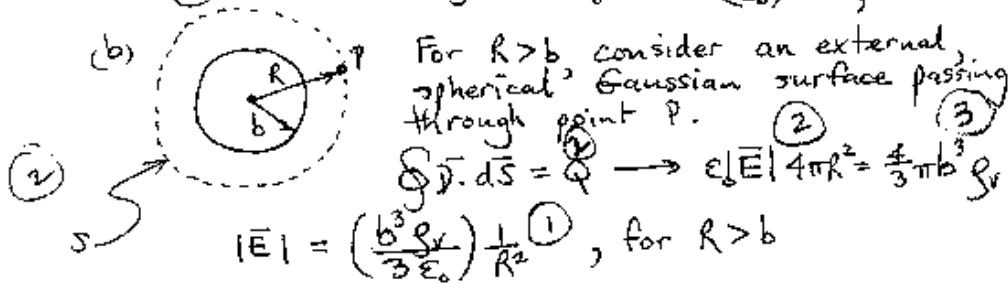 (b) For R>b, consider an external,
spherical Gaussian surface passing
through point P.
P
R
b
S
② ② ② ③
∮ D̄·ds̄ = Q → ε₀|Ē| 4πR² = 4/3 πb³ ρᵥ
|Ē| = (b³ρᵥ / 3ε₀) 1/R² ①, for R>b